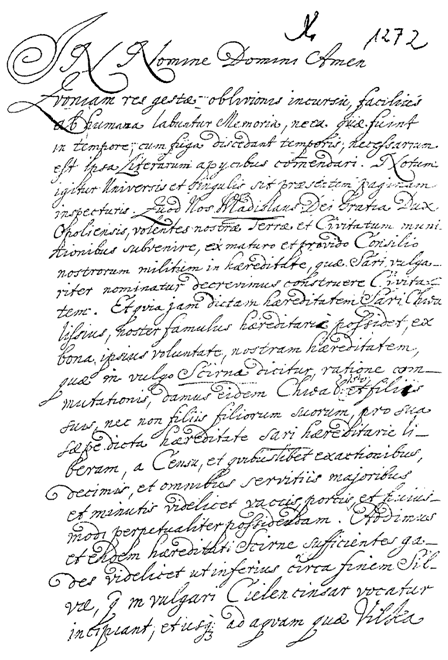 X. 1272
IN Nomine Domini Amen
Quoniam res gestæ oblivionis incursu, facilius
ab humana labuntur Memoria, neca quæ fiunt
in tempore, cum fuga discedant temporis, necessarum
est ipsa literarum apycibus com̄endari. Notum
igitur Universis et singulis sit præsentem paginam
inspecturis. Quod Nos Wladislaus Dei Gratia Dux
Opoliensis, volentes nostræ Terræ et Civitatum muni
tionibus subvenire, ex maturo et provido Consilio
nostrorum militum in hæreditate, quæ Sari vulga-
riter nominatur decrevimus construere Civita-
tem. Et quia jam dictam hæreditatem Sari Chwa
lissius, noster famulus hæreditarie possidet, ex
bona ipsius voluntate, nostram hæreditatem,
quæ in vulgo Scirna dicitur, ratione com-
mutationis, damus eidem et filiis
suis, nec non filiis filiorum suorum, pro sua
sæpe dicta hæreditate Sari hæreditarie li-
beram, a Censu, et quibuslibet exactionibus,
decimis, et omnibus servitiis majoribus
et minutis videlicet vaccis porcis et hujus-
modi perpetualiter possidendam. Addimus
et eidem hæreditati Scirne sufficientes ga-
des videlicet ut inferius circa finem Sil-
væ, q̃ in vulgari Cielencinsar vocatur
incipiunt, et usq; ad aquam quæ Vilska